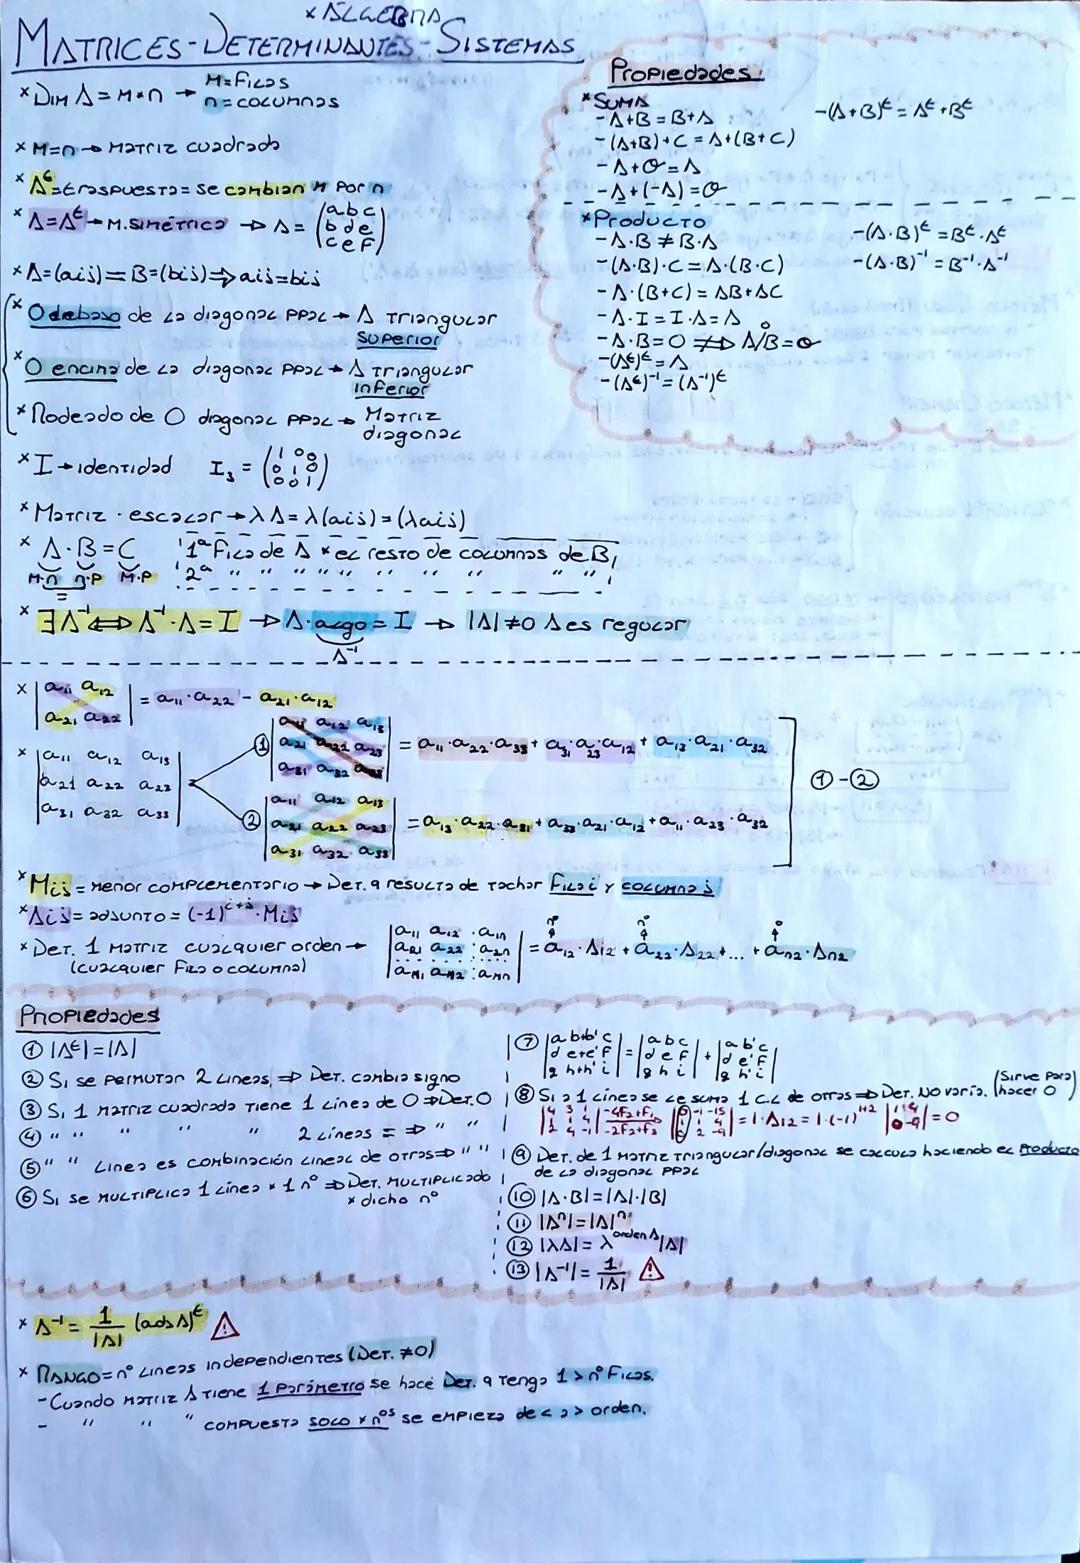 × ÁLGEBRA
MATRICES-DETERMINANTES-SISTEMAS
× DIM A = M×n → M=Filas
n=columnas
× M=n → Matriz cuadrada
× Aᵗ=traspuesta= se cambian M por n
× A=Aᵗ → M.simétrica → A= (a b c
b d e
c e f)
× A=(aij)=B=(bij)⇒aij=bij
× 0 debajo de la diagonal ppal → A Triangular
superior
× 0 encima de la diagonal ppal → A Triangular
inferior
× Rodeado de 0 diagonal ppal → Matriz
diagonal
× I → identidad I₃ = (1 0 0
0 1 0
0 0 1)
× Matriz · escalar → λA=λ(aij)=(λaij)
× A·B=C 1ª Fila de A × el resto de columnas de B
M·n n·p M·p 2ª " " " " " " " " "
× ∃A⁻¹ ⇔ A⁻¹·A=I → A·algo=I → |A|≠0 A es regular
A⁻¹
Propiedades:
× SUMA
-A+B=B+A -(A+B)ᵗ=Aᵗ+Bᵗ
-(A+B)+C=A+(B+C)
-A+O=A
-A+(-A)=O
× Producto
-A·B≠B·A -(A·B)ᵗ=Bᵗ·Aᵗ
-(A·B)·C=A·(B·C) -(A·B)⁻¹=B⁻¹·A⁻¹
-A·(B+C)=AB+AC
-A·I=I·A=A
-A·B=O ⇏ A/B=O
-(Aᵗ)ᵗ=A
-(Aᵗ)⁻¹=(A⁻¹)ᵗ
× |a₁₁ a₁₂
a₂₁ a₂₂| = a₁₁·a₂₂ - a₂₁·a₁₂
× |a₁₁ a₁₂ a₁₃
a₂₁ a₂₂ a₂₃
a₃₁ a₃₂ a₃₃|
① |a₁₁ a₁₂ a₁₃
a₂₁ a₂₂ a₂₃
a₃₁ a₃₂ a₃₃| = a₁₁·a₂₂·a₃₃+a₃₁·a₂₃·a₁₂+a₁₃·a₂₁·a₃₂
② |a₁₁ a₁₂ a₁₃
a₂₁ a₂₂ a₂₃
a₃₁ a₃₂ a₃₃| = a₁₃·a₂₂·a₃₁+a₃₃·a₂₁·a₁₂+a₁₁·a₂₃·a₃₂
①-②
× Mij = menor complementario → Det. q resulta de tachar fila i y columna j
× Aij = adjunto = (-1)ⁱ⁺ʲ·Mij
× Det. 1 matriz cualquier orden →
(cualquier fila o columna)
|a₁₁ a₁₂ . a₁n
a₂₁ a₂₂ : a₂n
an₁ an₂ : ann| = a₁₂·A₁₂+a₂₂·A₂₂+... +an₂·An₂
nº nº nº
Propiedades
① |Aᵗ|=|A|
② Si se permutan 2 líneas ⇒ Det. cambia signo
③ Si 1 matriz cuadrada tiene 1 línea de 0 ⇒ Det.0
④ " " " " " 2 líneas = ⇒ " "
⑤ " " Línea es combinación lineal de otras ⇒ " "
⑥ Si se multiplica 1 línea × 1 nº ⇒ Det. multiplicado
× dicho nº
⑦ |a b+b' c
d e+e' f
g h+h' i| = |a b c
d e f
g h i| + |a b' c
d e' f
g h' i|
⑧ Si a 1 línea se le suma 1 C.L de otras ⇒ Det. no varía. (Sirve para
hacer 0)
⑨ Det. de 1 matriz triangular/diagonal se calcula haciendo el producto
de la diagonal ppal
⑩ |A·B|=|A|·|B|
⑪ |Aⁿ|=|A|ⁿ
⑫ |λA|=λ^orden A |A|
⑬ |A⁻¹|= 1/|A| ⚠
× A⁻¹= 1/|A| (adj A)ᵗ ⚠
× RANGO=nº líneas independientes (Det. ≠0)
-Cuando matriz A tiene 1 parámetro se hace Det. q tenga 1 > nº filas.
- " " " compuesta solo × nºs se empieza de < a > orden.